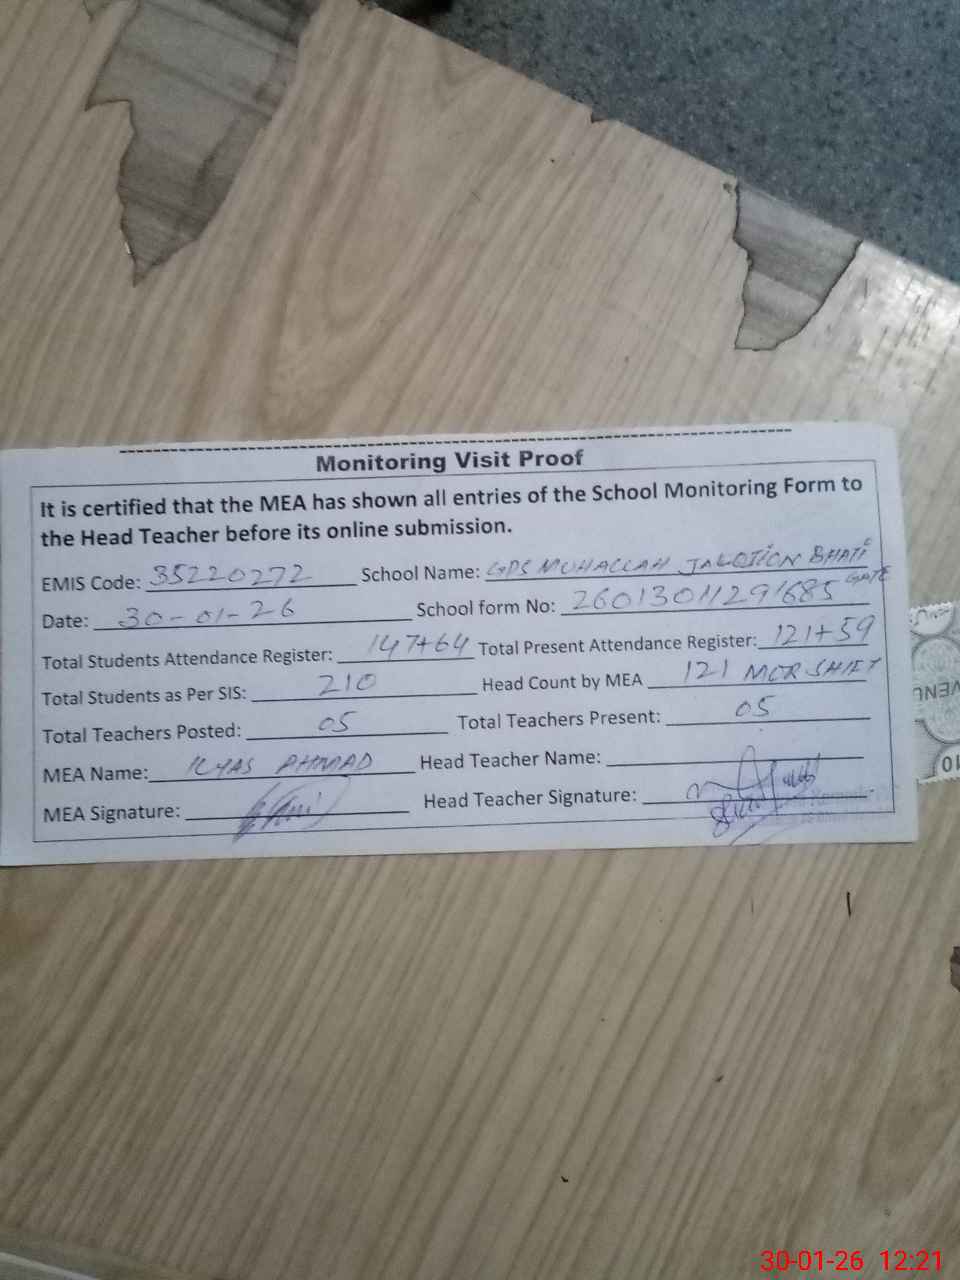 Monitoring Visit Proof
It is certified that the MEA has shown all entries of the School Monitoring Form to
the Head Teacher before its online submission.
EMIS Code: 35220272 School Name: GPS MUHALLAH JALOTION BHATI GATE
Date: 30-01-26 School form No: 26013011291685
Total Students Attendance Register: 147+64 Total Present Attendance Register: 121+59
Total Students as Per SIS: 210 Head Count by MEA 121 MOR SHIFT
Total Teachers Posted: 05 Total Teachers Present: 05
MEA Name: ILYAS AHMAD Head Teacher Name:
MEA Signature: Head Teacher Signature:
10
30-01-26 12:21